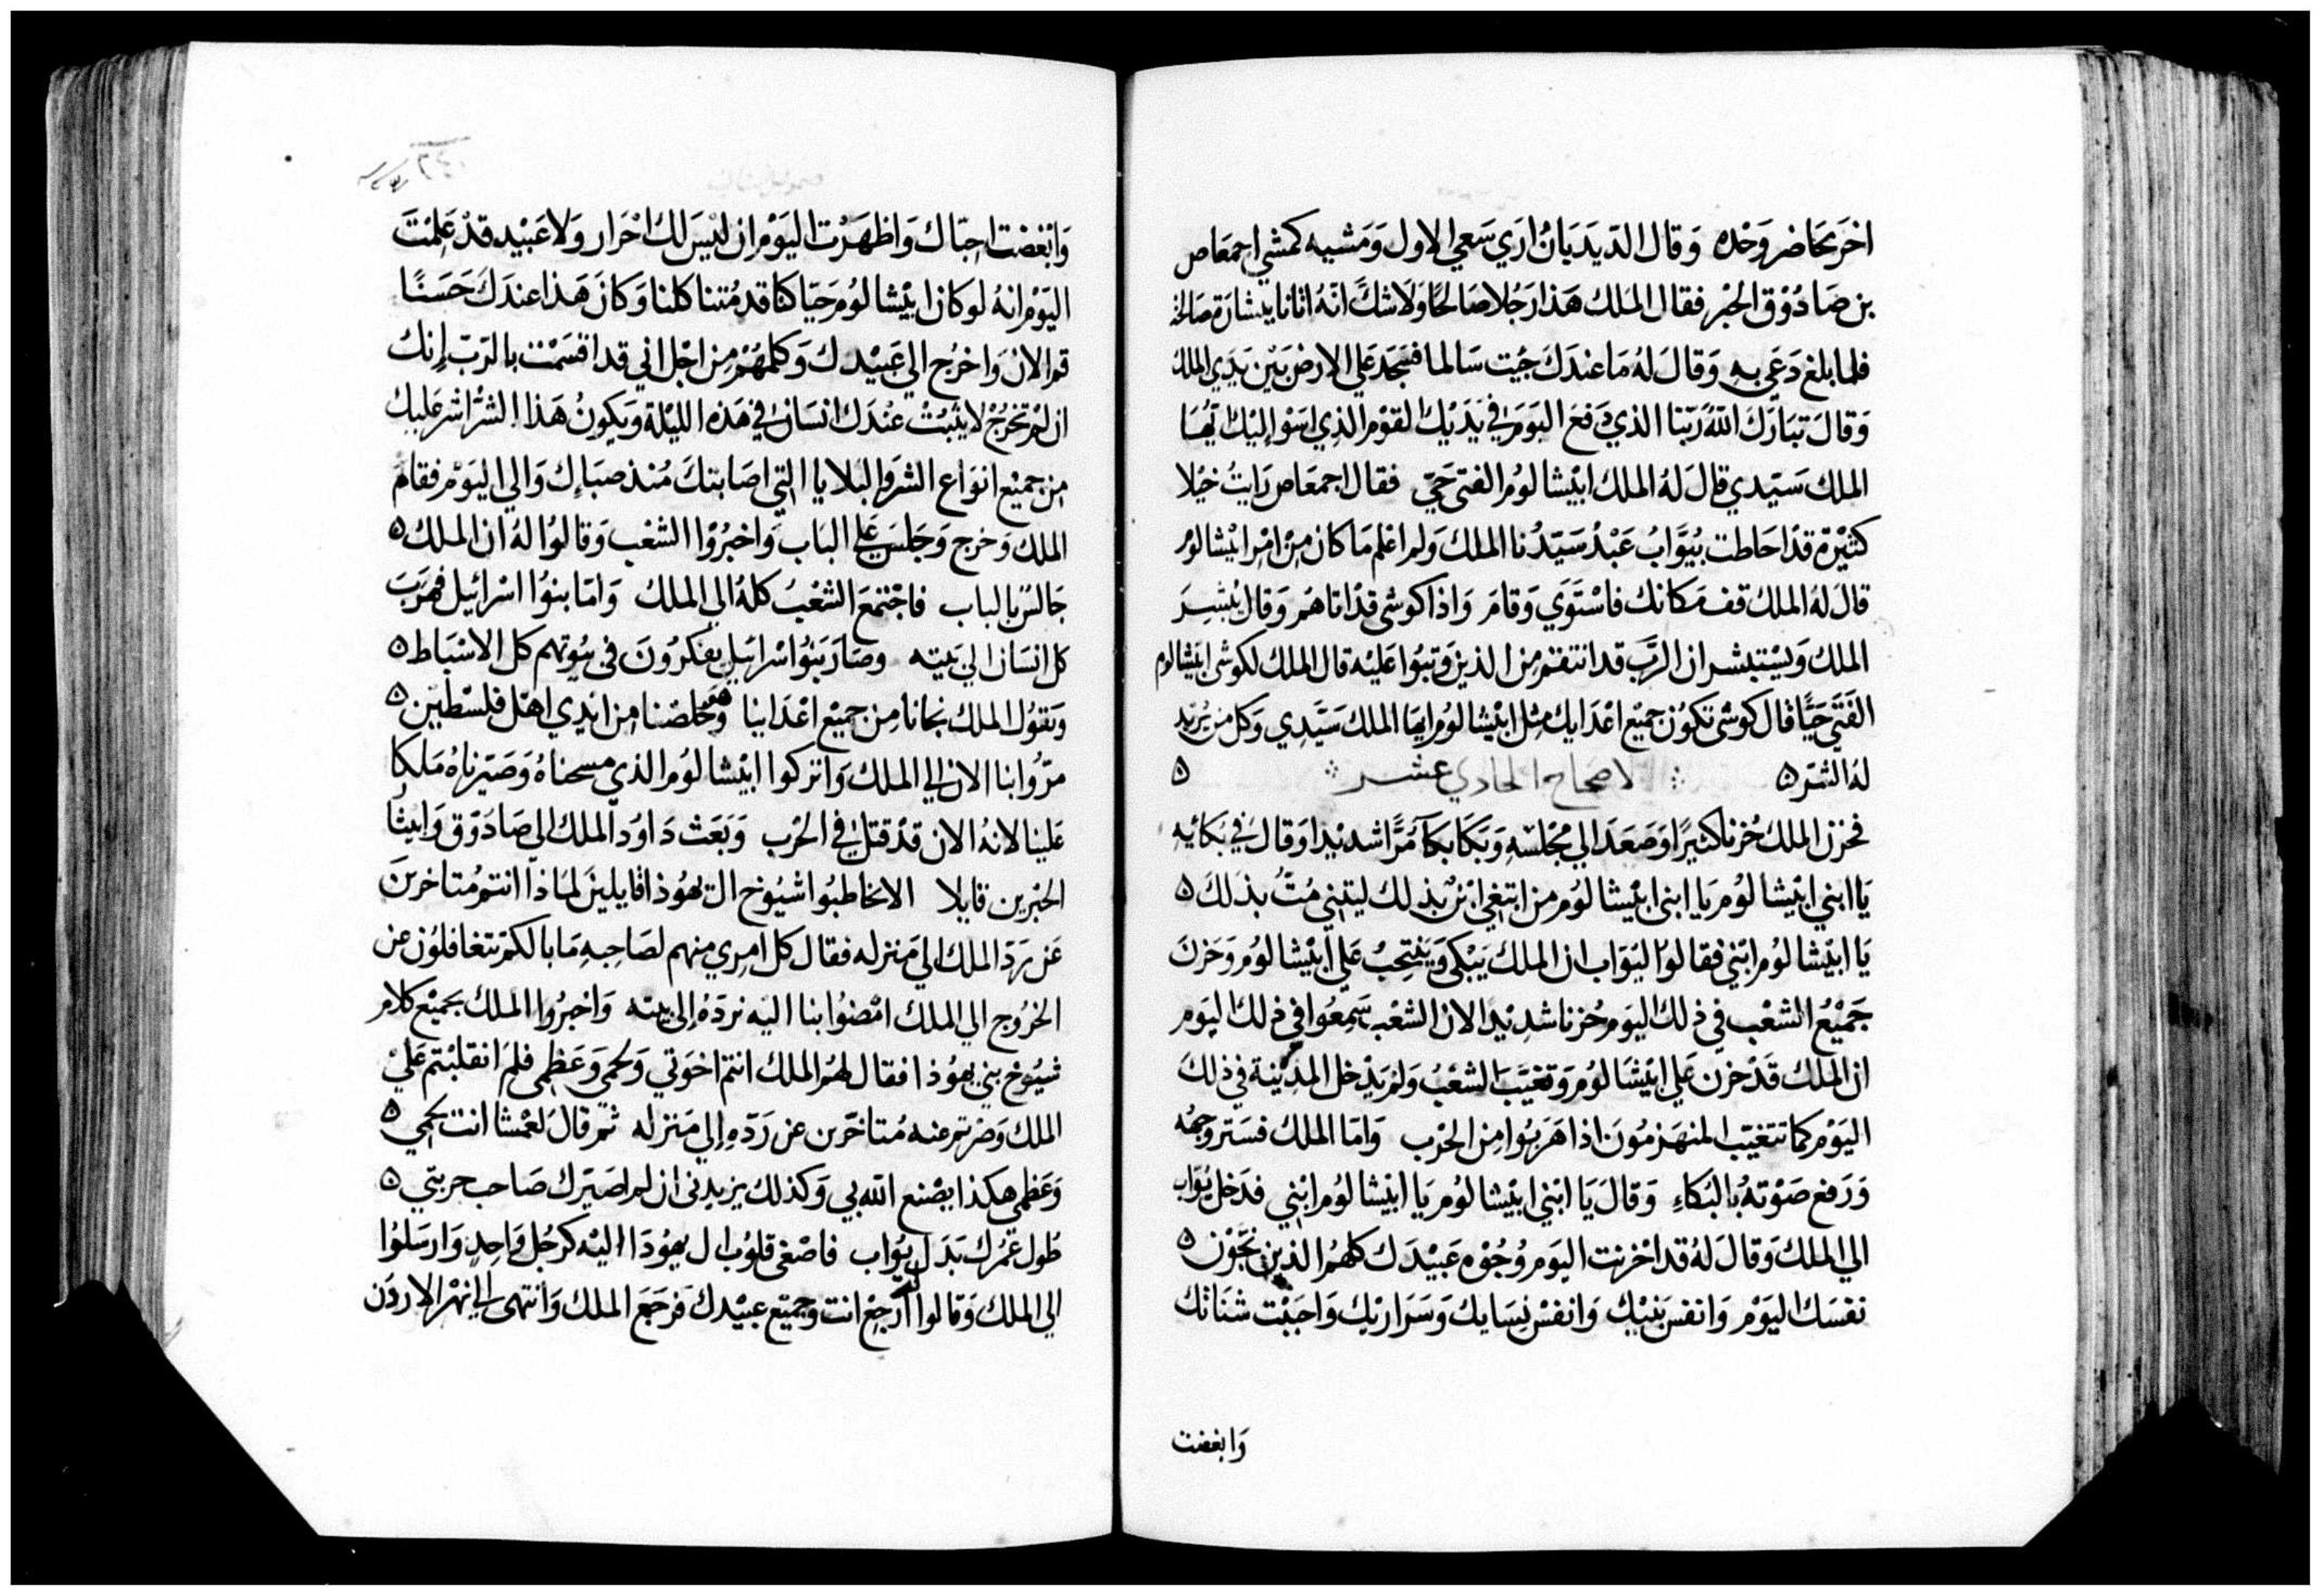 اخر يحاضر وحده وقال الديدبان اري سعي الاول ومشيه كمشي اجمعاص
بن صادوق الحبر فقال الملك هذا رجلا صالحا ولا شك انه اتانا ببشارة صالحة
فلما بلغ دعي به وقال له ما عندك جيت سالما فسجد علي الارض بين يدي الملك
وقال تبارك الله ربنا الذي دفع اليوم في يديك القوم الذي اسوا اليك ايها
الملك سيدي قال له الملك ابيشالوم الفتى حي فقال اجمعاص رايت خيلا
كثيرة قد احاطت بيواب عبد سيدنا الملك ولم اعلم ما كان من امر ابيشالوم
قال له الملك قف مكانك فاستوي وقام واذا كوشى قد اتاهم وقال يبشر
الملك ويستبشر ان الرب قد انتقم من الذين وثبوا عليه قال الملك لكوشى ابيشالوم
الفتي حيا قال كوشى تكون جميع اعدايك مثل ابيشالوم ايها الملك سيدي وكل من يريد
له الشر ٥ الاصحاح الحادي عشر ٥
فحزن الملك حزنا كثيرا وصعد الي مجلسه وبكا بكآ مرا شديدا وقال في بكائه
يا ابني ابيشالوم يا ابني ابيشالوم من ابتغي اتن بذلك ليتني مت بذلك ٥
يا ابيشالوم ابني فقالوا ليواب ان الملك يبكي وينتحب علي ابيشالوم وحزن
جميع الشعب في ذلك اليوم حزنا شديدا لان الشعب سمعوا في ذلك اليوم
ان الملك قد حزن علي ابيشالوم وتغيب الشعب ولم يدخل المدينة في ذلك
اليوم كما تتغيب المنهزمون اذا هربوا من الحرب واما الملك فستر وجهه
ورفع صوته بالبكاء وقال يا ابني ابيشالوم يا ابيشالوم ابني فدخل يواب
الي الملك وقال له قد احزنت اليوم وجوه عبيدك كلهم الذين نجون ٥
نفسك اليوم وانفس بنيك وانفس نسايك وسراريك واحببت شناتك
وابغضت
وابغضت احباك واظهرت اليوم ان ليس لك احرار ولا عبيد قد علمت
اليوم انه لو كان ابيشالوم حيا كنا قد متنا كلنا وكان هذا عندك حسنا
قم الان واخرج الي عبيدك وكلمهم من اجل اني قد اقسمت بالرب إنك
ان لم تخرج لا يثبت عندك انسان في هذه الليلة ويكون هذا الشر اشر عليك
من جميع انواع الشر والبلايا التي اصابتك منذ صباك والي اليوم فقام
الملك وخرج وجلس علي الباب واخبروا الشعب وقالوا له ان الملك ٥
جالس بالباب فاجتمع الشعب كله الي الملك واما بنوا اسرائيل فهرب
كل انسان الي بيته وصار بنوا اسرائيل يفكرون في بيوتهم كل الاسباط ٥
ويقول الملك نجانا من جميع اعداينا وهو خلصنا من ايدي اهل فلسطين ٥
مروا بنا الان الي الملك واتركوا ابيشالوم الذي مسحناه وصيرناه ملكا
علينا لانه الان قد قتل في الحرب وبعث داود الملك الي صادوق وابيثار
الحبرين قايلا الا نخاطبوا شيوخ ال يهوذا قايلين لماذا انتم متاخرين
عن يرد الملك الي منزله فقال كل امري منهم لصاحبه ما بالكم تتغافلون عن
الخروج الي الملك امضوا بنا اليه نرده إلي بيته واخبروا الملك بجميع كلام
شيوخ بني يهوذا فقال لهم الملك انتم اخوتي ولحمي وعظمي فلم انقلبتم علي
الملك وصرتم عنه متاخرين عن رده إلي منزله ثم قال لعمشا انت لحمي ٥
وعظمي هكذا يصنع الله بي وكذلك يزيدني ان لم اصيرك صاحب حربتي ٥
طول عمرك بدل يواب فاصغى قلوب ال يهودا اليه كرجل واحد وارسلوا
الي الملك وقالوا له ارجع انت وجميع عبيدك فرجع الملك وانتهى الي نهر الاردن